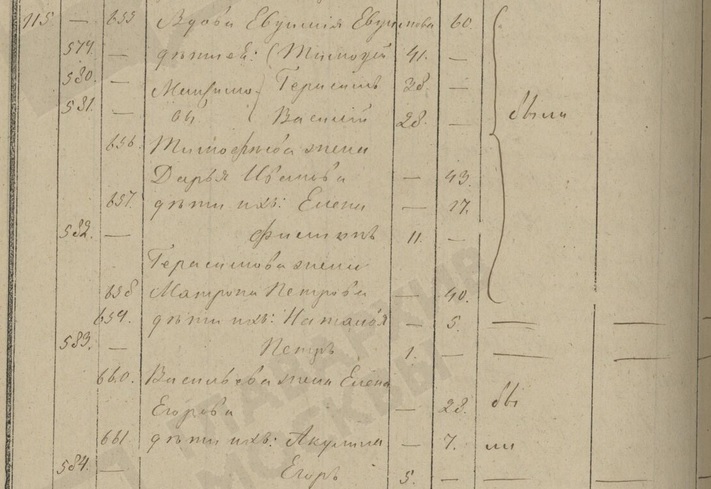 115 — 655 Вдова Евфимія Евфимова — 60.
579. — дѣтей: Тимофей 41. —
580. — Максимовы Герасимъ 38. —
581. — Василій 28. — были
656. Тимофѣева жена
Дарья Иванова — 43.
657. дѣти ихъ: Елена — 17.
582. — Филиппъ 11. —
Герасимова жена
658 Матрона Петрова — 40.
659. дѣти ихъ: Наталья — 5. — —
583. — Петръ 1. — — —
660. Васильева жена Елена
Егорова — 28. бы
661 дѣти ихъ: Акулина — 7. ли
584. — Егоръ 5. — — —
ГЛАВАРХИВ
МОСКВЫ